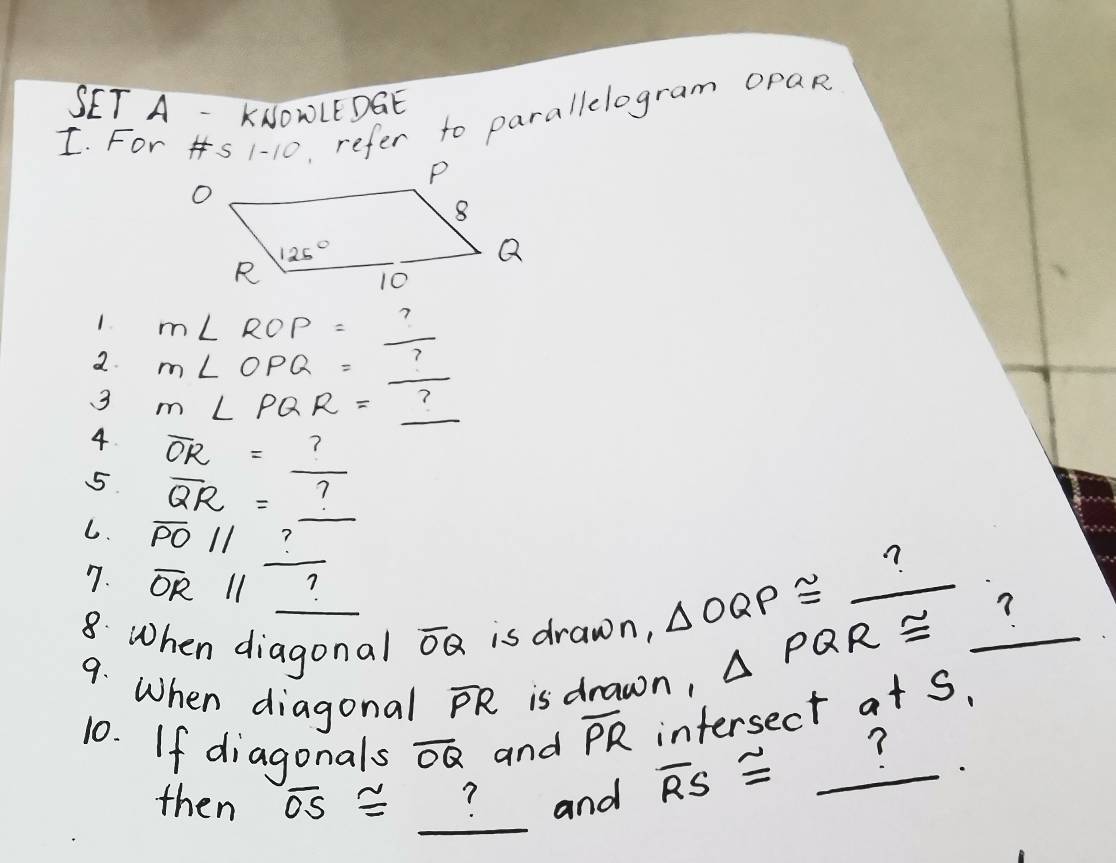 SET A - KNOWLEDGE
I. For #s 1-10, refer to parallelogram OPQR
O
P
8
125°
R
Q
10
1. m∠ ROP = ?
2. m∠ OPQ = ?
3 m ∠ PQR = ?
4. O̅R̅ = ?
5. Q̅R̅ = ?
6. P̅O̅ // ?
7. O̅R̅ // ?
8. When diagonal O̅Q̅ is drawn, △OQP ≅ ?.
9. When diagonal P̅R̅ is drawn, △ PQR ≅ ?.
10. If diagonals O̅Q̅ and P̅R̅ intersect at S,
then O̅S̅ ≅ ? and R̅S̅ ≅ ?.